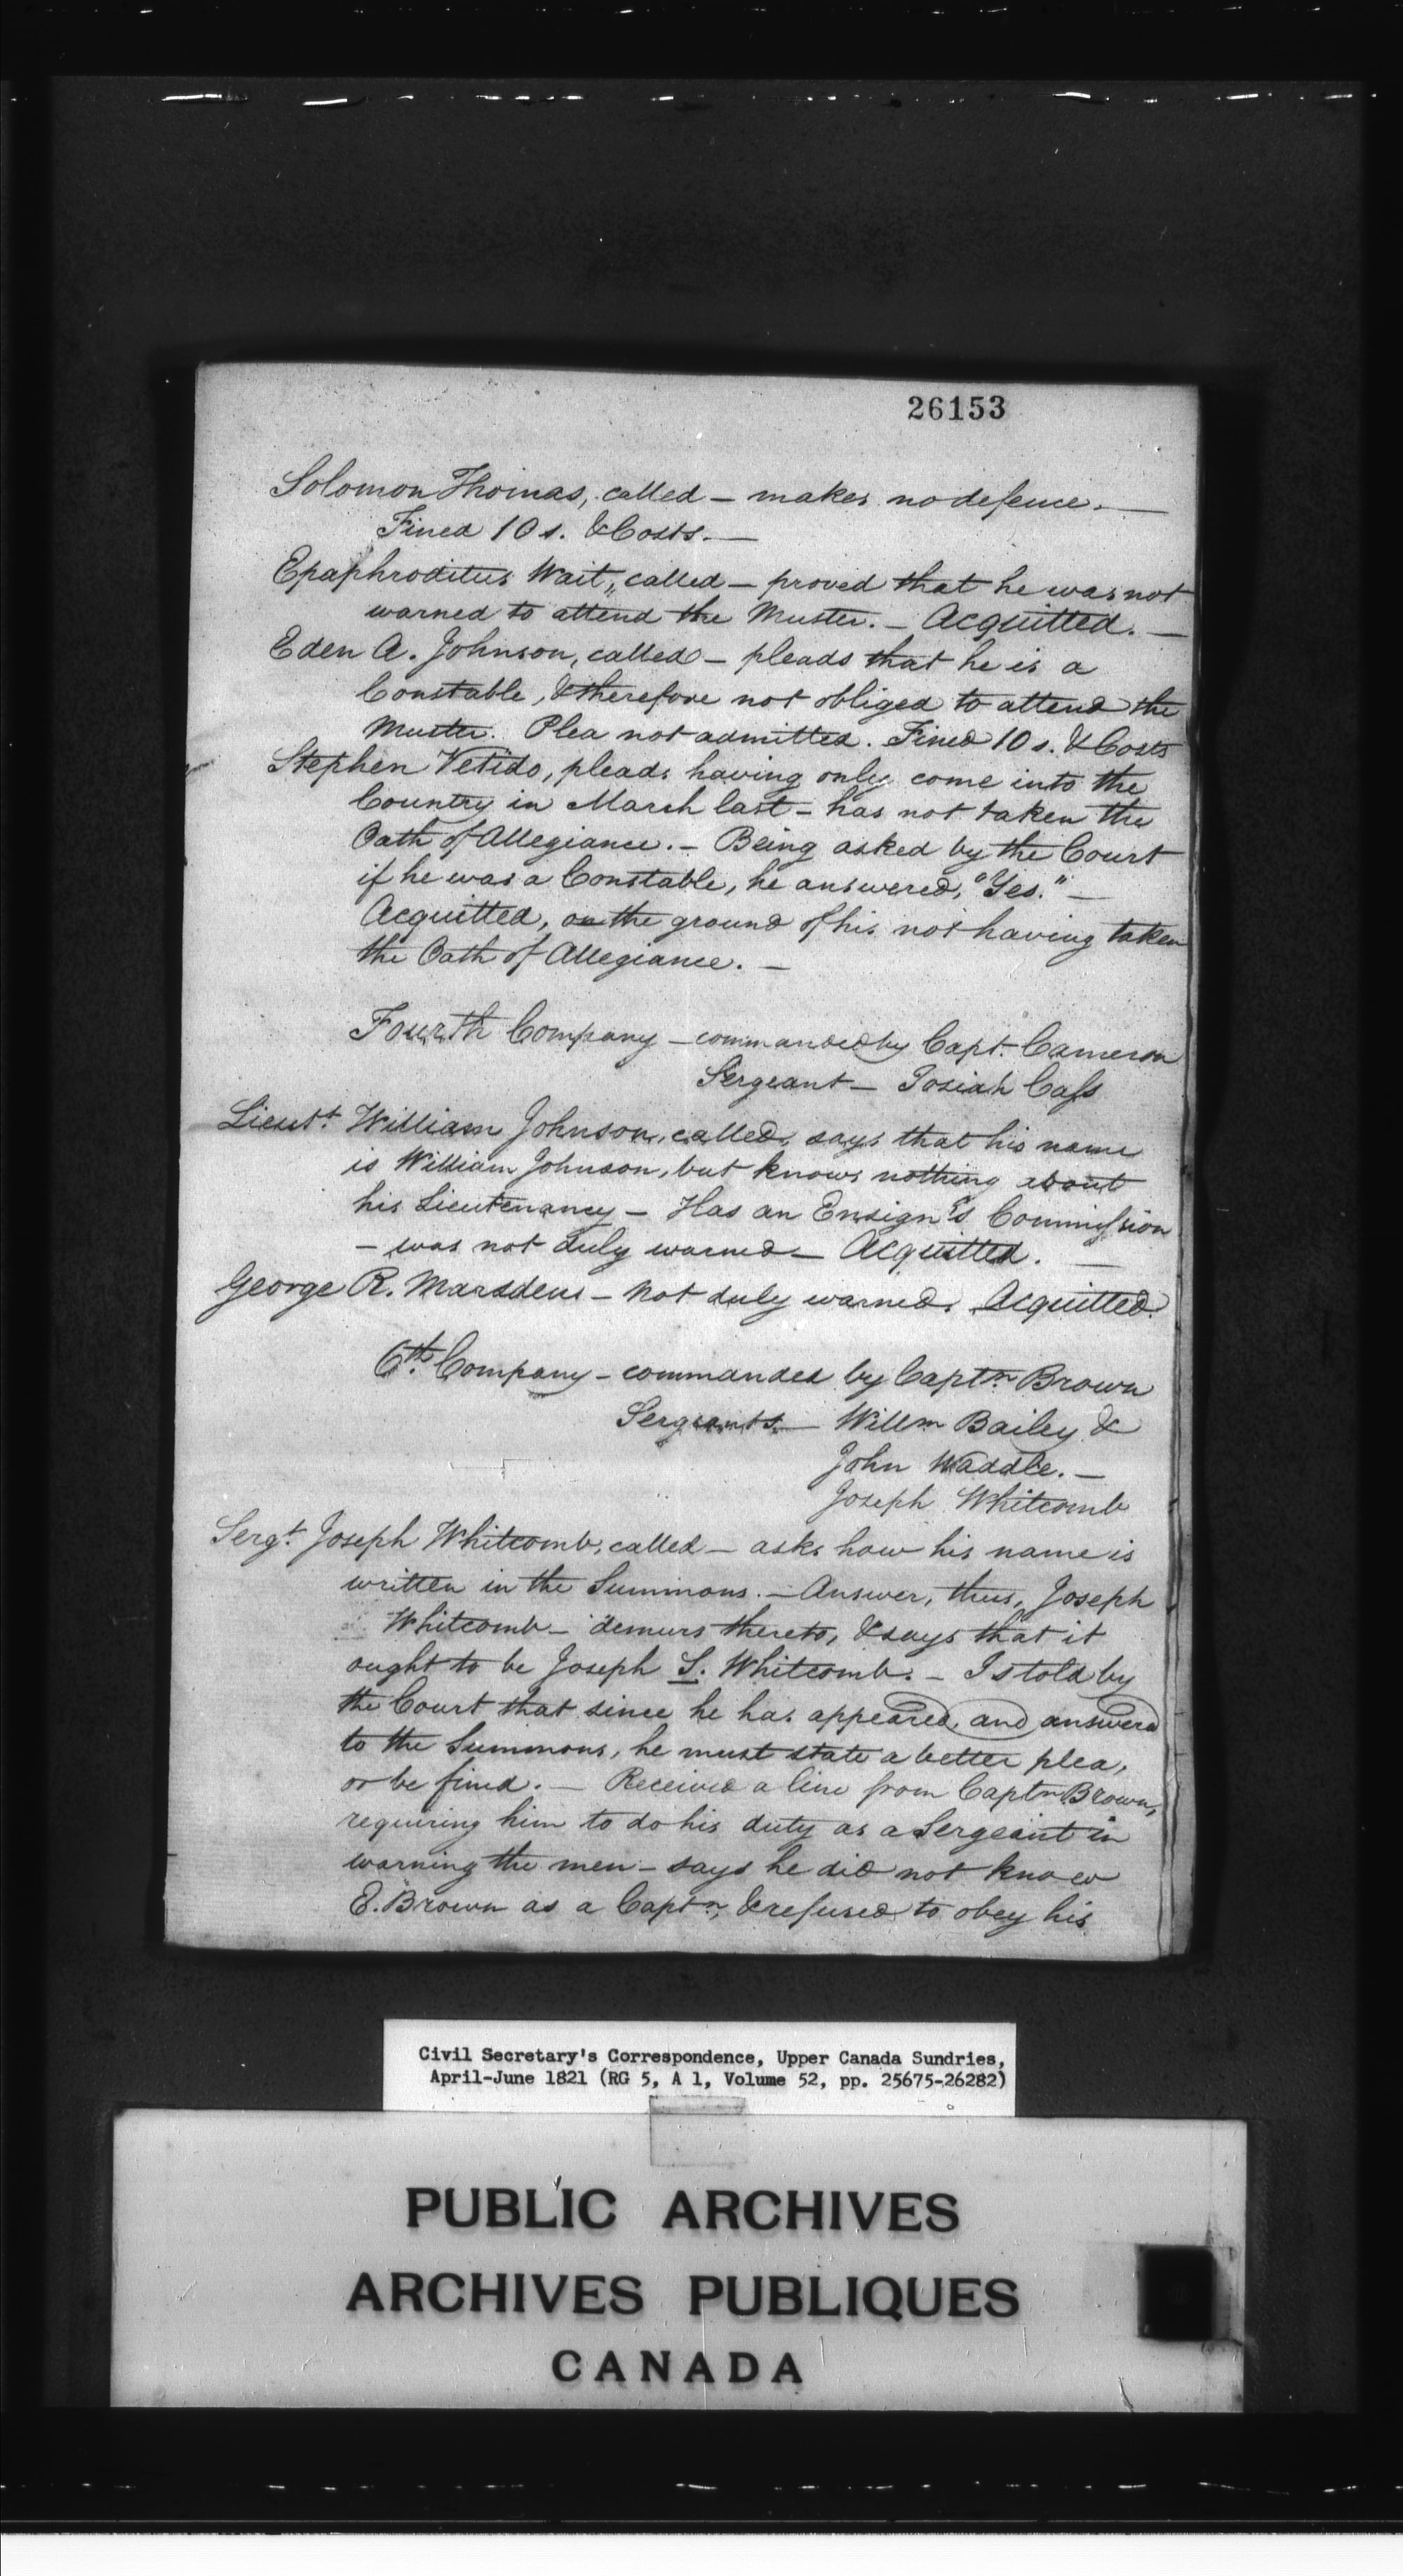 26153
Solomon Thomas, called – makes no defence. —
Fined 10 s. & Costs. —
Epaphroditus Wait, called – proved that he was not
warned to attend the Muster. – Acquitted. —
Eden A. Johnson, called – pleads that he is a
Constable, & therefore not obliged to attend the
Muster. Plea not admitted. Fined 10 s. & Costs
Stephen Vetido, pleads having only come into the
Country in March last – has not taken the
Oath of Allegiance. – Being asked by the Court
if he was a Constable, he answered, "Yes." —
Acquitted, on the ground of his not having taken
the Oath of Allegiance. —
Fourth Company – commanded by Capt. Cameron
Sergeant – Josiah Cass
Lieutt William Johnson, called, says that his name
is William Johnson, but knows nothing about
his Lieutenancy – Has an Ensign's Commission
– was not duly warned – Acquitted. —
George R. Marsdens – Not duly warned. Acquitted.
6th Company – commanded by Captn Brown
Sergeants – Willm Bailey &
John Waddle. –
Joseph Whitcomb
Sergt. Joseph Whitcomb, called – asks how his name is
written in the Summons. – Answer, thus, Joseph
Whitcomb – demurs thereto, & says that it
ought to be Joseph S. Whitcomb. – Is told by
the Court that since he has appeared, and answered
to the Summons, he must state a better plea,
or be fined. – Received a line from Captn Brown,
requiring him to do his duty as a Sergeant in
warning the men – says he did not know
E. Brown as a Captn, & refused to obey his
Civil Secretary's Correspondence, Upper Canada Sundries,
April-June 1821 (RG 5, A 1, Volume 52, pp. 25675-26282)
PUBLIC ARCHIVES
ARCHIVES PUBLIQUES
CANADA